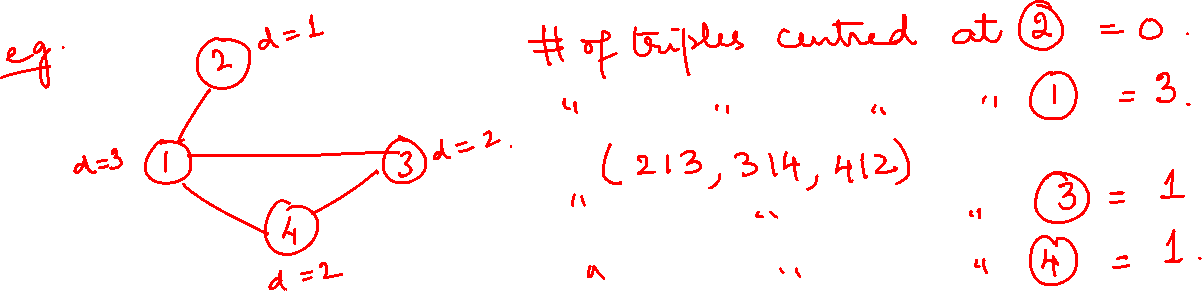 eg.
2 d=1
d=3 1
3 d=2.
4
d=2
# of triples centred at ② = 0.
" " " " ① = 3.
(213, 314, 412)
" " " ③ = 1
" " " ④ = 1.